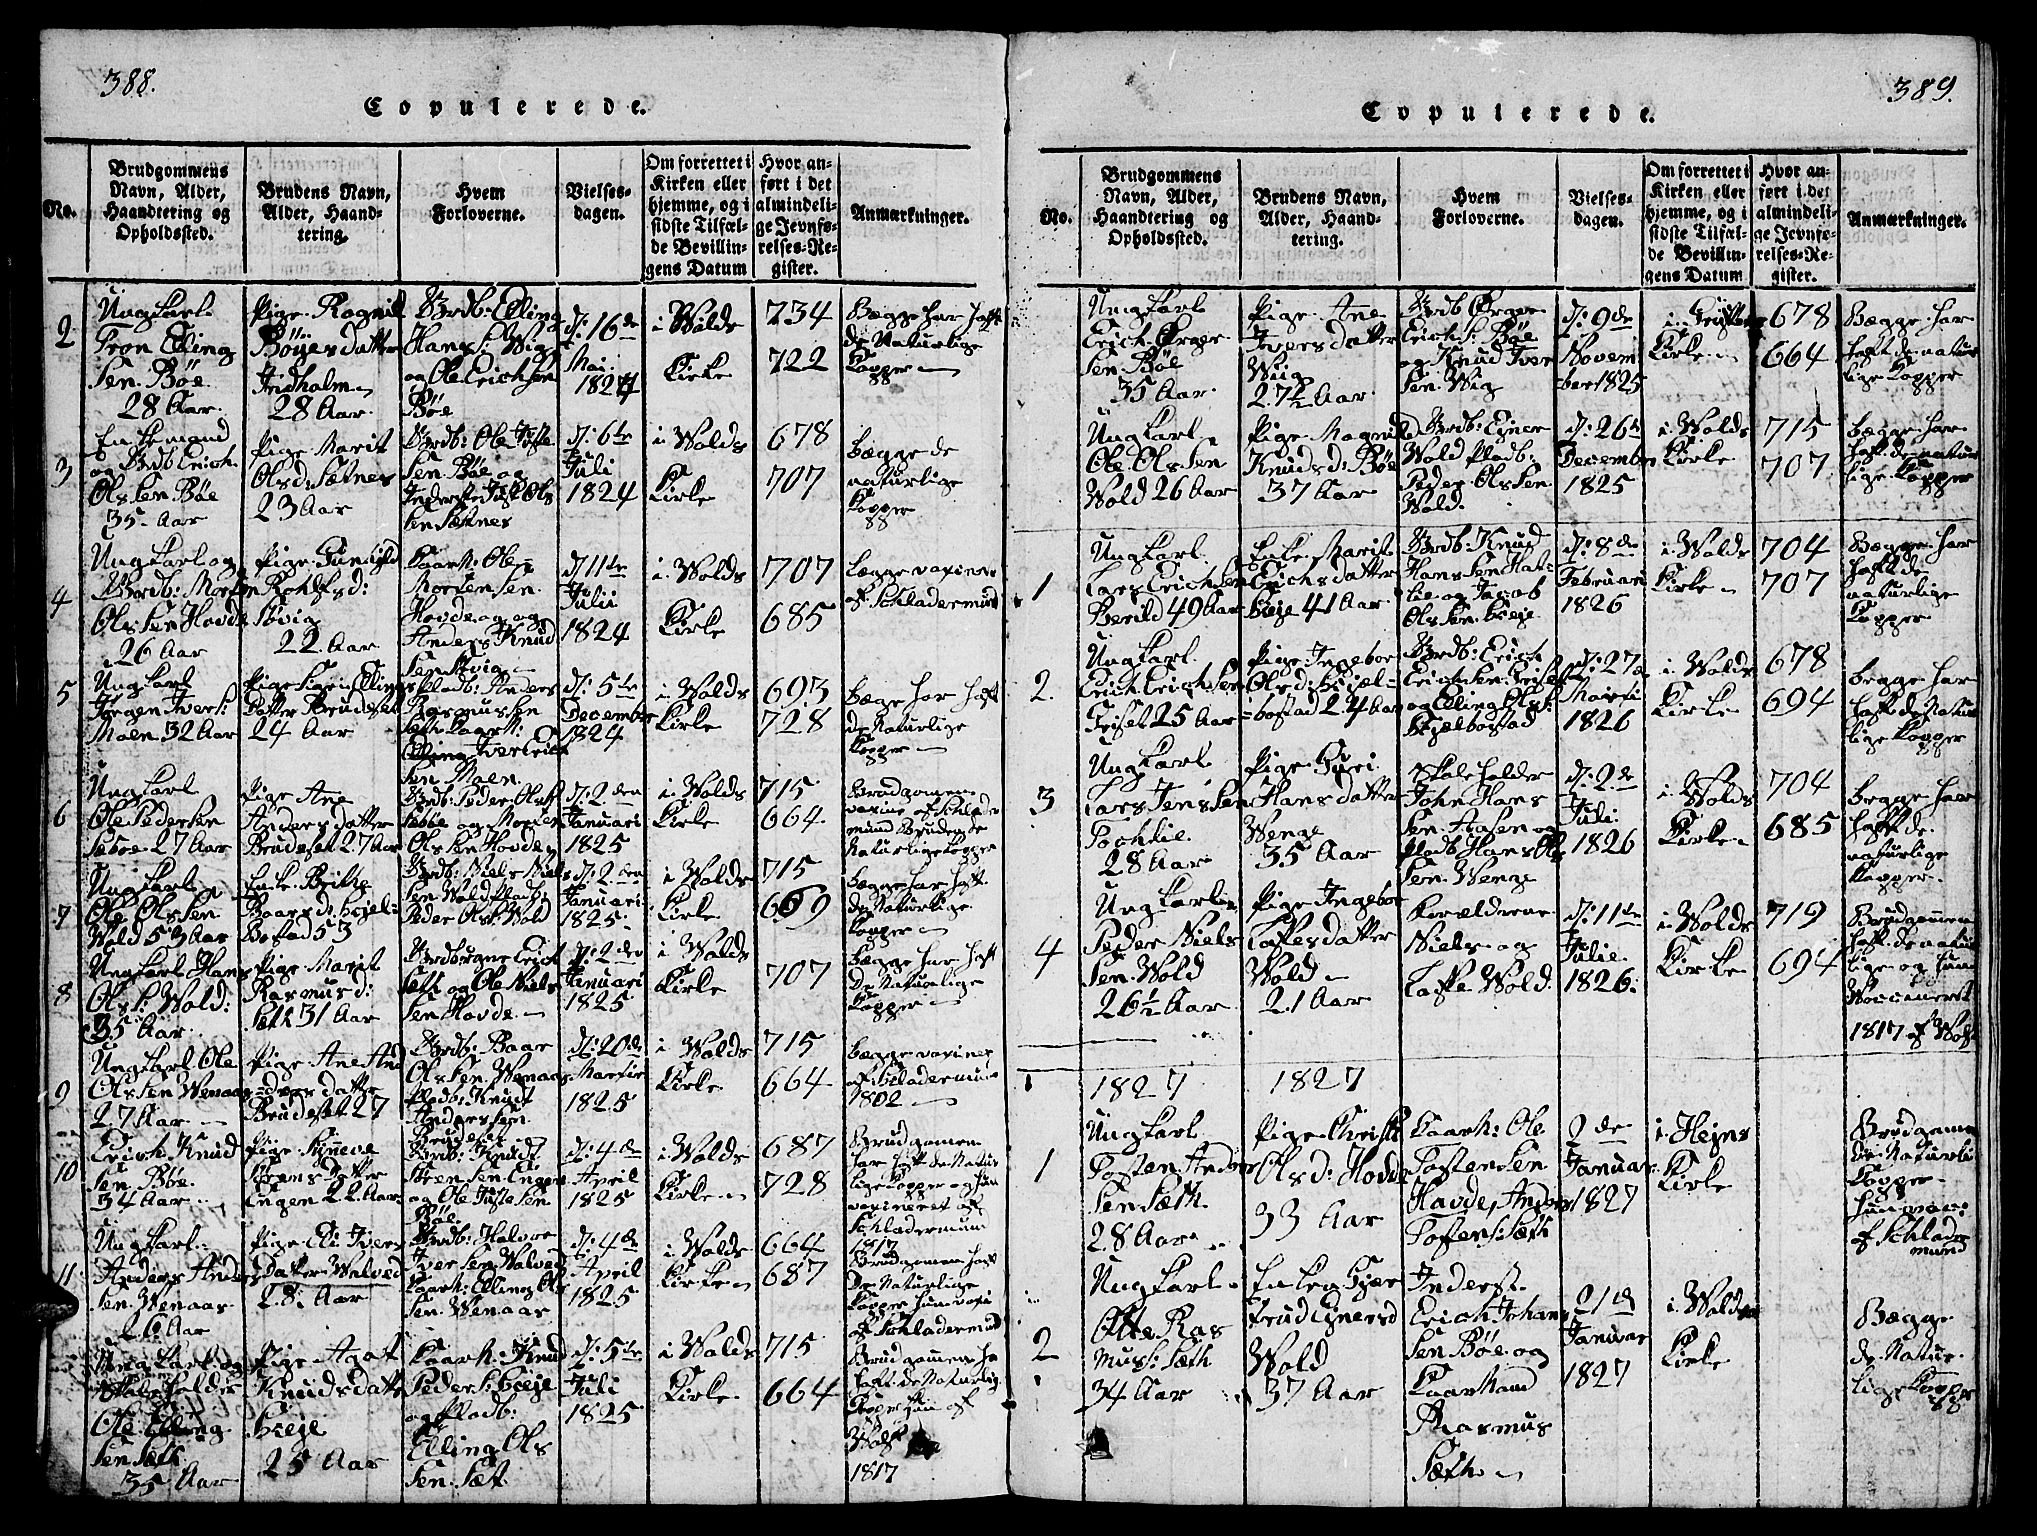 388.
Copulerede.
No.
Brudgommens
Navn, Alder,
Haandtering og
Opholdssted.
Brudens Navn,
Alder, Haand-
tering.
Hvem
Forloverne.
Vielses-
dagen.
Om forrettet i
Kirken eller
hjemme, og i
sidste Tilfæl-
de Bevillin-
gens Datum
Hvor an-
ført i det
almindeli-
ge Jevnfø-
relses-Re-
gister.
Anmærkninger.
2
Ungkarl
Tron Elling
Sen Böe
28 Aar.
Pige Ragnil
Böyesdatter
Indholm
28 Aar.
Brdb: Elling
Hans S: Wiig
og Ole Erichsen
Böe
D: 16de
Mai
1824
i Wolds
Kirke
734
722
Begge har haft
de Naturlige
Kopper
3
Enkemand
og Brdb Erich
Ols Sen Böe
35 Aar
Pige Marit
Olsd: Sætnes
23 Aar
Brdb: Ole
Sen Böe og
Inderste Ols
Sen Sætnes
D: 6te
Juli
1824
i Wolds
Kirke
678
707
begge de
naturlige
Kopper
4
Ungkarl og
Brdb: Morten
Ols Sen Hovde
26 Aar
Pige Gunhild
Rohlfsd:
Söviig
22 Aar
Kaarm: Ole
Mortensen
Hovde og
Anders Knud
Sen
D 11te
Julii
1824
i Wolds
Kirke
707
685
begge vaxinere
af Schladermund
5
Ungkarl
Jörgen Ivers:
Moen 32 Aar
Pige Sigri Ellings
datter Brudeset
24 Aar
Pladb: Anders
Rasmussen
Sæth Kaarm:
Sen Moen
D: 5te
December
1824
i Wolds
Kirke
693
728
Begge har haft
de Naturlige
Kopper
6
Ungkarl
Ole Peder Sen
Sæboe 27 Aar
Pige Ane
Andersdatter
Brudeset 27 Aar
Brdb: Peder Ols S
Sæböe og Morten
Ols Sen Hovde
D: 2den
Januari
1825
i Wolds
Kirke
715
664
Brudgomen
vaxine af Schlader
mund Brudende
Naturlige Kopper
7
Ungkarl
Ole Ols Sen
Wold 53 Aar
Enke Britte
Baarsd: Hiel-
Bostad 53
Brdb: Niels Niels
Sen Wold Pladb:
Peder Ols S: Wold
D: 2den
Januari
1825
i Wolds
Kirke
715
669
Begge har haft
de Naturlige
Kopper
8
Ungkarl Hans
Ols S: Wold:
35 Aar
Pige Marit
Rasmusd:
Sæth 31 Aar
Sæth og Ole Niels
Sen Hovde
D: 2den
Januari
1825
i Wolds
Kirke
707
Begge har haft
De Naturlige
Kopper
9
Ungkarl Ole
Ols Sen Wenaas
27 Aar
Pige Ane And
ers datter
Brudeset 27
Brdb: Baar
Ols Sen Wenaas
Pladb: Knud
Anders Sen
Brudeset
D: 20de
Martii
1825
i Wolds
Kirke
715
664
begge vaxiner
af Schladermun
1802
10
Erich Knud
Sen Böe
34 Aar
Pige Synneve
Steens datter
Engen 22 Aar
Brdb: Knud
Steen Sen Engen
og Ole Sen
Böe
D: 4de
April
1825
i Wolds
Kirke
687
728
Brudgomen
har haft de Natur
lige Kopper og hun
vaxineret af
Schladermund
1817
11
Ungkarl
Anders Anders
Sen Wenaas
26 Aar
Pige Eli Ivers
datter Walved
28 Aar
Brdb: Halvor
Iver Sen Walved
Kaarm: Elling Ols
Sen Wenaas
D: 4de
April
1825
i Wolds
Kirke
664
687
Brudgomen haft
De Naturlige
Kopper hun vaxi
af Schladermund
Ungkarl og
Skoleholder
Ole Elling
Sen Sæth
35 Aar
Pige Agat
Knudsdatter
Heje
25 Aar
Kaarm: Knud
Peder S: Heje
og Pladb:
Elling Ols
Sen Sæt
D: 5te
Juli
1825
i Wolds
Kirke
715
664
Brudgommen ha
haft de Naturlig
Kopper hun af
Wolf
1817
389.
Copulerede.
No.
Brudgommens
Navn, Alder,
Haandtering og
Opholdssted.
Brudens Navn,
Alder, Haand-
tering.
Hvem
Forloverne.
Vielses-
dagen.
Om forrettet i
Kirken eller
hjemme, og i
sidste Tilfæl-
de Bevillin-
gens Datum
Hvor an-
ført i det
almindeli-
ge Jevnfø-
relses-Re-
gister.
Anmærkninger.
Ungkarl
Erich Örger
Sen Böe
35 Aar
Pige Ane
Iversdatter
Wiig
27½ Aar
Brdb Örger
Erich S: Böe
og Knud Iver
Sen Wiig
D: 9de
Novem
ber 1825
i
Kirke
678
664
Begge har
haft de natur
lige Kopper
Ungkarl
Ole Ols Sen
Wold 26 Aar
Pige Magnild
Knudsd: Böe
37 Aar
Brdb: Einer
Wold Pladb:
Peder Ols Sen
Wold.
D: 26de
December
1825
i Wolds
Kirke
715
707
begge har
haft de natur
lige Kopper
1
Ungkarl
Lars Erich Sen
Berild 49 Aar
Enke Marit
Erichsdatter
Heje 41 Aar
Brdb: Knud
Hans Sen Hat-
lie og Jacob
Ols Sen Heje
D: 8de
Februari
1826
i Wolds
Kirke
704
707
Begge har
haft de
naturlige
Kopper
2.
Ungkarl
Erich Erich Sen
25 Aar
Pige Ingebor
Olsd: Hiel-
bostad 24 Aar
Brdb: Erich
Erich Sen
og Elling Ols S:
Hjelbostad
D: 27de
Martii
1826
i Wolds
Kirke
678
694
begge har
haft de Natur
lige Kopper
3
Ungkarl
Lars Jens Sen
28 Aar
Pige Guri
Hansdatter
Wenge
35 Aar
Skoleholder
John Hans
Sen Aasen og
Pladb Hans Ols
Sen Wenge
D: 2de
Juli
1826
i Wolds
Kirke
704
685
begge har
haft de
naturlige
Kopper
4
Ungkarl
Peder Niels
Sen Wold
26½ Aar
Pige Ingebor
Laffesdatter
Wold
21 Aar
Forældrene
Niels og
Laffe Wold
D: 11te
Julie
1826
i Wolds
Kirke
719
694
Brudgommen
haft de natur
lige og hun
Vaccineret
1817 af Wolf
1827
1827
1
Ungkarl
Tosten Anders
Sen Sæth
28 Aar
Pige Christi
Olsd: Hovde
33 Aar
Kaarm: Ole
Tosten Sen
Hovde, Anders
Tostens: Sæth
2de
Januar
1827
i Hejns
Kirke
Brudgomen
de Naturlig
Kopper
hun vax:
af Schlader
mund
2
Ungkarl
Otte Ras
mus S: Sæth
34 Aar
Enken Gjer
trud Einersd
Wold
37 Aar
Inderst
Erich Johans
Sen Böe og
Kaarmand
Rasmus
Sæth
21de
Januar
1827
i Wolds
Kirke
Begge
de Natur
lige Kopper